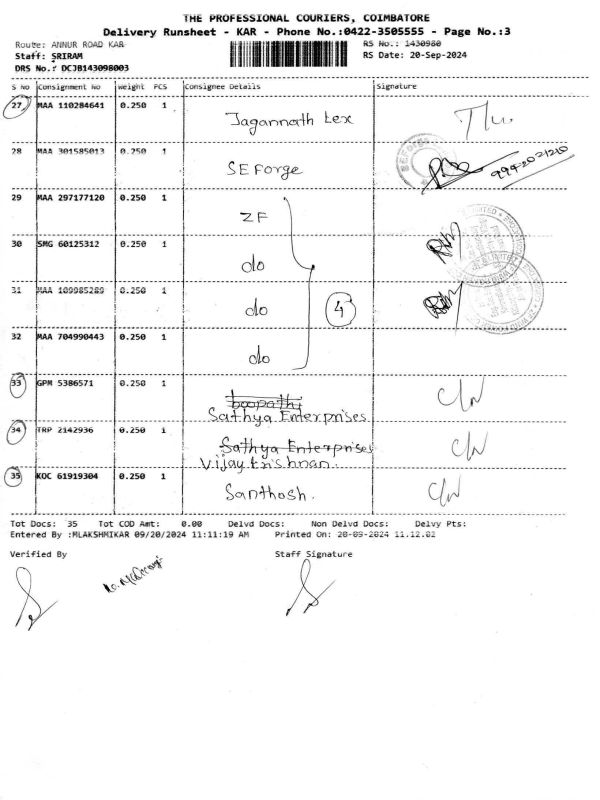 THE PROFESSIONAL COURIERS, COIMBATORE
Delivery Runsheet - KAR - Phone No.:0422-3505555 - Page No.:3
Route: ANNUR ROAD KAR
RS No.: 1430980
Staff: SRIRAM
RS Date: 20-Sep-2024
DRS No.: DCJB143098003
S No Consignment No Weight PCS Consignee Details Signature
27 MAA 110284641 0.250 1 Jagannath Lex
28 MAA 301585013 0.250 1 SEForge
29 MAA 297177120 0.250 1 ZF
30 SMG 60125312 0.250 1 do
31 MAA 109985289 0.250 1 do 4
32 MAA 704990443 0.250 1 do
33 GPM 5386571 0.250 1 boopathi
Sathya Enterprises C/W
34 TRP 2142936 0.250 1 Sathya Enterprises
Vijay krishnan. C/W
35 KOC 61919304 0.250 1 Santhosh. C/W
Tot Docs: 35 Tot COD Amt: 0.00 Delvd Docs: Non Delvd Docs: Delvy Pts:
Entered By :MLAKSHMIKAR 09/20/2024 11:11:19 AM Printed On: 20-09-2024 11.12.02
Verified By Staff Signature